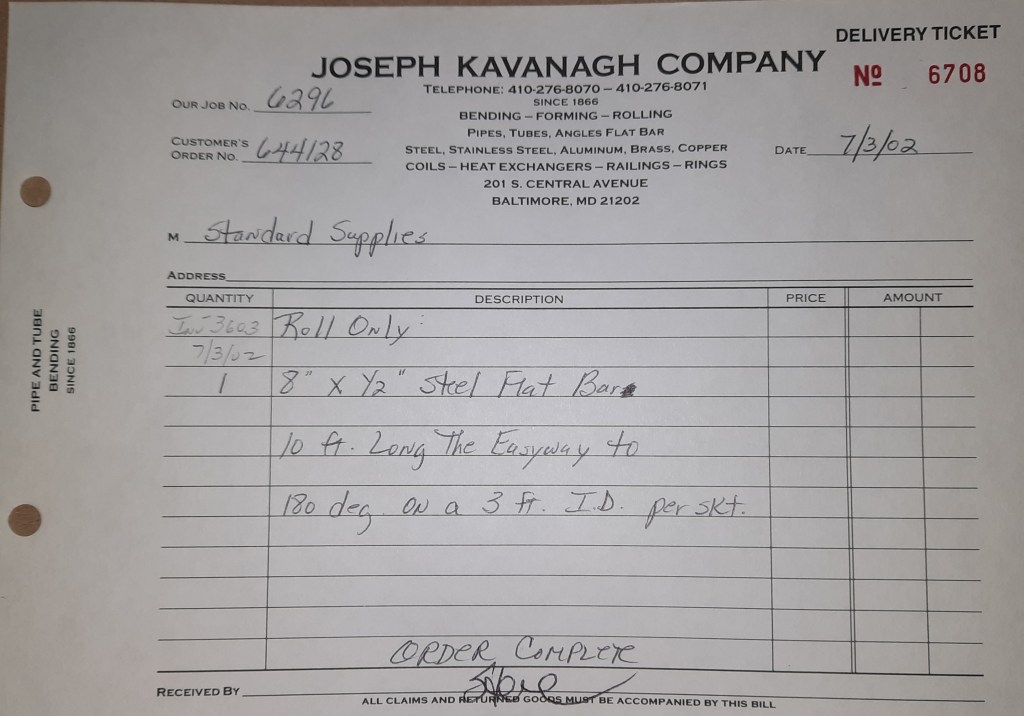 DELIVERY TICKET
JOSEPH KAVANAGH COMPANY
Nº 6708
TELEPHONE: 410-276-8070 – 410-276-8071
SINCE 1866
OUR JOB NO. 6296
BENDING – FORMING – ROLLING
PIPES, TUBES, ANGLES FLAT BAR
CUSTOMER'S
ORDER NO. 644128
STEEL, STAINLESS STEEL, ALUMINUM, BRASS, COPPER
DATE 7/3/02
COILS – HEAT EXCHANGERS – RAILINGS – RINGS
201 S. CENTRAL AVENUE
BALTIMORE, MD 21202
M Standard Supplies
ADDRESS
QUANTITY DESCRIPTION PRICE AMOUNT
Inv 3603 Roll Only:
7/3/02
1 8" x 1/2" Steel Flat Bar
10 ft. Long The Easyway to
180 deg. on a 3 ft. I.D. per skt.
ORDER COMPLETE
RECEIVED BY
ALL CLAIMS AND RETURNED GOODS MUST BE ACCOMPANIED BY THIS BILL
PIPE AND TUBE
BENDING
SINCE 1866